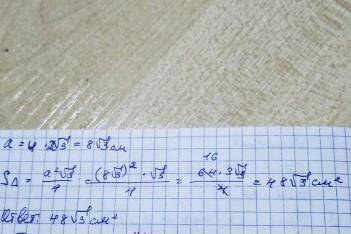 a = 4 · 2√3 = 8√3 см
S△ = a²√3/4 = (8√3)² · √3/4 = 16 64 · 3√3/4 = 48√3 см²
Ответ: 48√3 см²